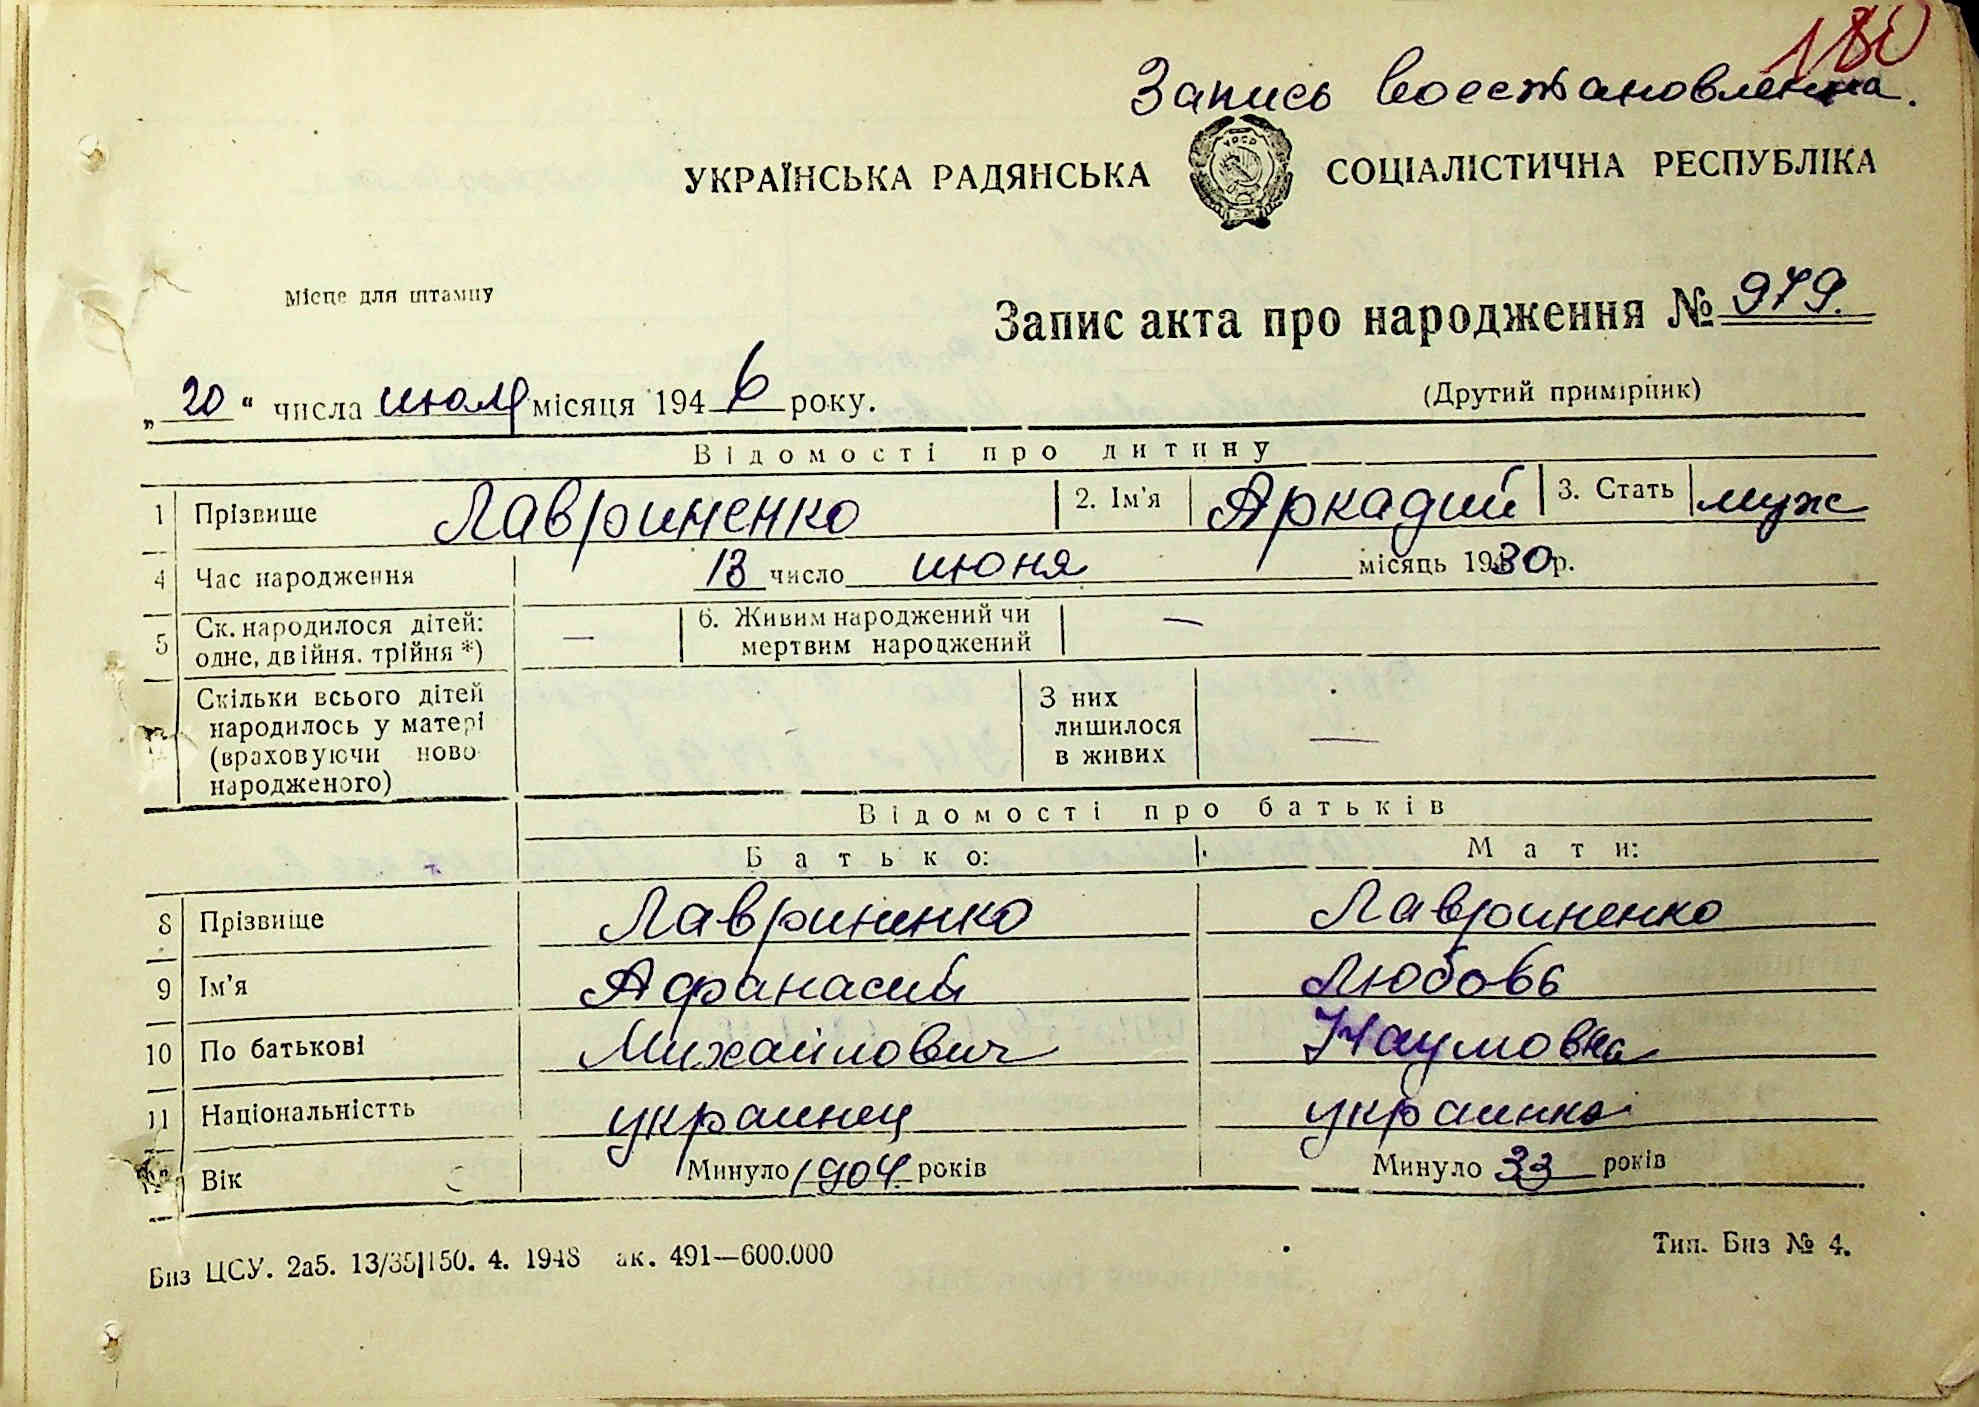 180
Запись восстановлена.
УКРАЇНСЬКА РАДЯНСЬКА СОЦІАЛІСТИЧНА РЕСПУБЛІКА
Місце для штампу
Запис акта про народження № 979.
„20“ числа июля місяця 1946 року.
(Другий примірник)
Відомості про дитину
1 Прізвище Лавриненко 2. Ім'я Аркадий 3. Стать муж
4 Час народження 13 число июня місяць 1930 р.
5 Ск. народилося дітей: одне, двійня, трійня *) — 6. Живим народжений чи мертвим народжений —
Скільки всього дітей народилось у матері (враховуючи ново народженого) З них лишилося в живих —
Відомості про батьків
Батько: Мати:
8 Прізвище Лавриненко Лавриненко
9 Ім'я Афанасий Любовь
10 По батькові Михайлович Наумовна
11 Національністть украинец украинка
12 Вік Минуло 1904 років Минуло 33 років
Биз ЦСУ. 2а5. 13/35|150. 4. 1948 ак. 491—600.000
Тип. Биз № 4.